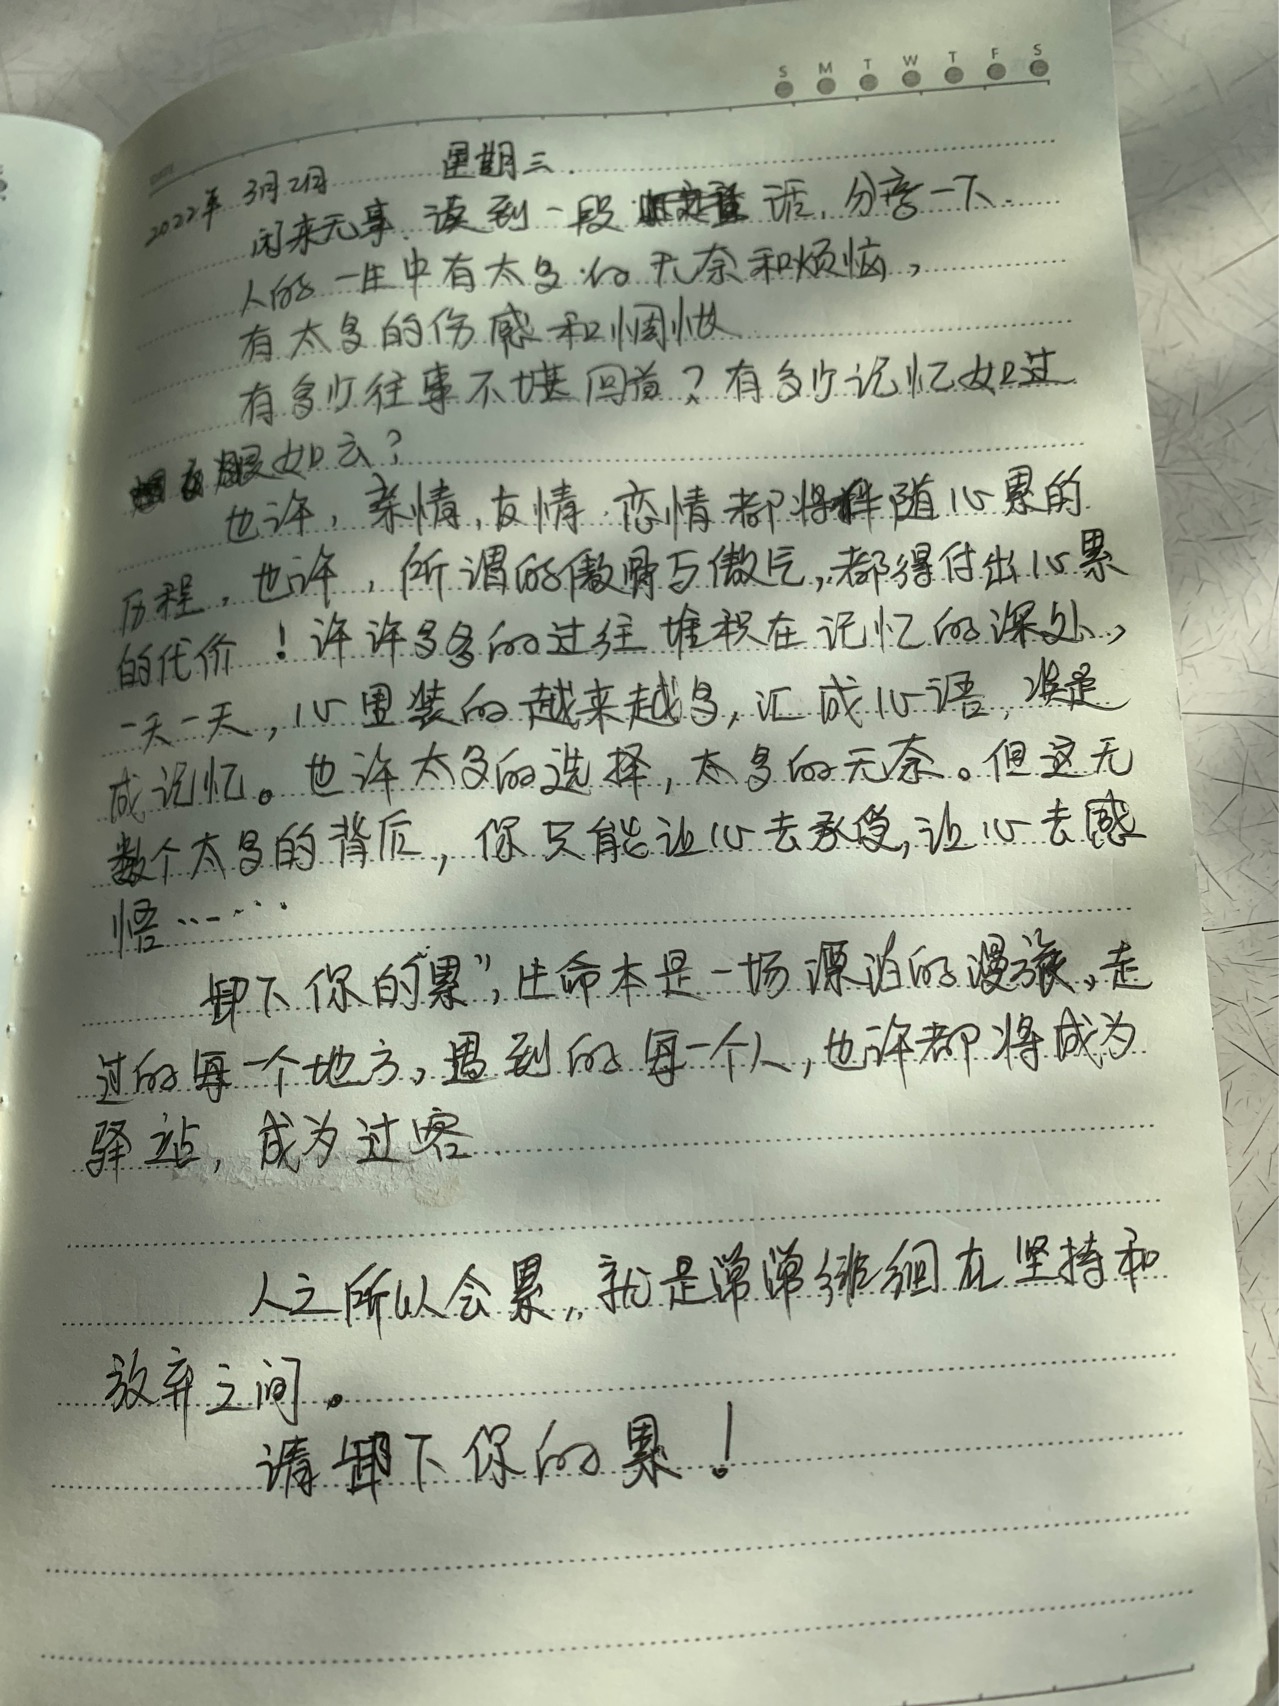 S M T W T F S
DATE
2022年 3月2日 星期三
闲来无事.读到一段话.分享一下.
人的一生中有太多的无奈和烦恼,
有太多的伤感和惆怅
有多少往事不堪回首?有多少记忆如过
眼如云?
也许,亲情,友情.恋情都将伴随心累的
历程,也许,所谓的傲骨与傲气,都得付出心累
的代价!许许多多的过往堆积在记忆的深处,
一天一天,心里装的越来越多,汇成心语,
成记忆。也许太多的选择,太多的无奈。但这无
数个太多的背后,你只能让心去承受,让心去感
悟……
卸下你的"累",生命本是一场漂泊的漫旅,走
过的每一个地方,遇到的每一个人,也许都将成为
驿站,成为过客
人之所以会累,就是常常徘徊在坚持和
放弃之间。
请卸下你的累!